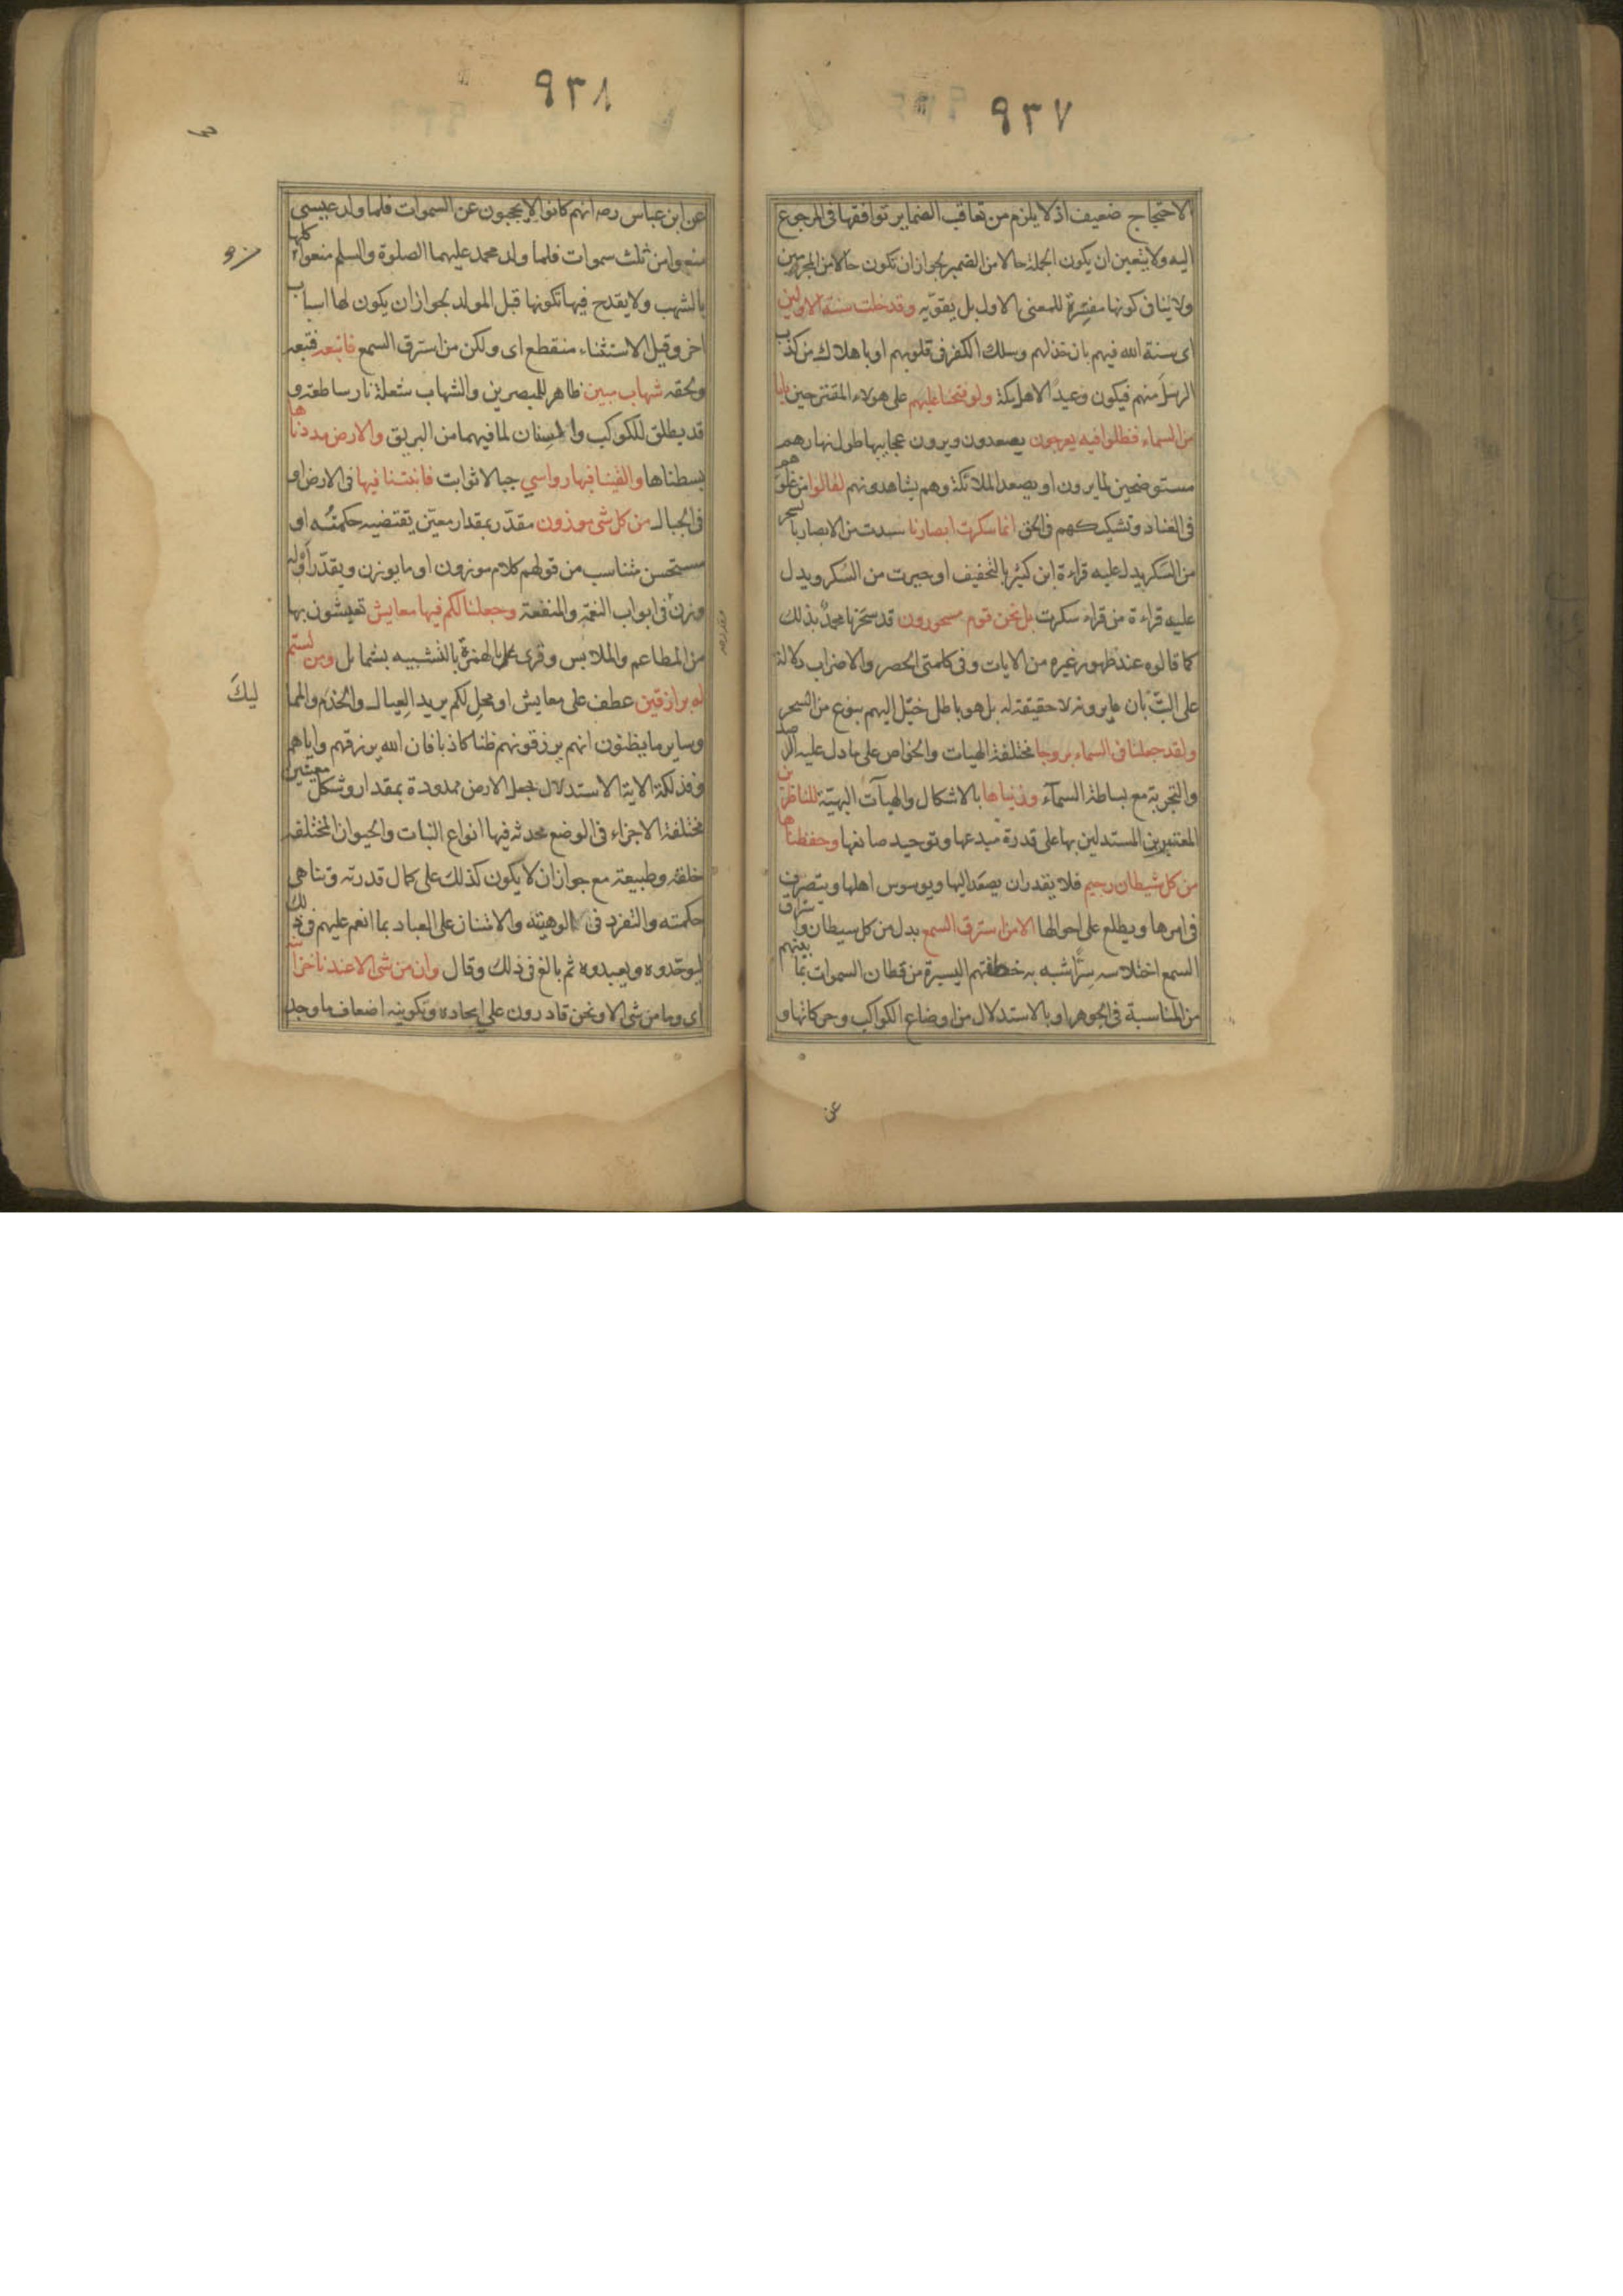 ٩٣٧
الاحتجاج ضعيف اذ لا يلزم من تعاقب الضماير توافقها فى المرجوع
اليه ولا يتعين ان يكون الجملة حالا من الضمير لجواز ان تكون حالا من المجرمين
ولا ينافى كونها مفسرة للمعنى الاول بل يقويه وقد خلت سنة الاولين
اى سنة الله فيهم بان خذلهم وسلك الكفر فى قلوبهم او باهلاك من كذب
الرسل منهم فيكون وعيدا لاهل مكة ولو فتحنا عليهم على هولاء المقترحين بابا
من السماء فظلوا فيه يعرجون يصعدون ويرون عجايبها طول نهارهم
مستوضحين لما يرون او يصعد الملائكة وهم يشاهدونهم لقالوا من غلوهم
فى العناد وتشكيكهم فى الحق انما سكرت ابصارنا سدت من الابصار بالسحر
من السكر يدل عليه قراءة ابن كثير بالتخفيف او حيرت من السكر ويدل
عليه قراءة من قراء سكرت بل نحن قوم مسحورون قد سحرنا محمد بذلك
كما قالوه عند ظهور غيره من الايات وفى كلمتى الحصر والاضراب دلالة
على البت بان ما يرونه لا حقيقة له بل هو باطل خيل اليهم بنوع من السحر
ولقد جعلنا فى السماء بروجا مختلفة الهيات والخواص على ما دل عليه الرصد
والتجربة مع بساطة السماء وزيناها بالاشكال والهيآت البهية للناظرين
المعتبرين المستدلين بها على قدرة مبدعها وتوحيد صانعها وحفظناها
من كل شيطان رجيم فلا يقدر ان يصعد اليها ويوسوس اهلها ويتصرف
فى امرها ويطلع على احوالها الا من استرق السمع بدل من كل شيطان واستراق
السمع اختلاسه سرا شبه به خطفتهم اليسيرة من قطان السموات بما بينهم
من المناسبة فى الجوهر او بالاستدلال من اوضاع الكواكب وحركاتها و
عن
٩٣٨
عن ابن عباس رضه انهم كانوا لا يحجبون عن السموات فلما ولد عيسى
منعوا من ثلث سموات فلما ولد محمد عليهما الصلوة والسلم منعوا كلها
بالشهب ولا يقدح فيها تكونها قبل المولد لجواز ان يكون لها اسباب
اخر وقيل الاستثناء منقطع اى ولكن من استرق السمع فاتبعه فتبعه
ولحقه شهاب مبين ظاهر للمبصرين والشهاب شعلة نار ساطعة و
قد يطلق للكوكب والسنان لما فيهما من البريق والارض مددناها
بسطناها والقينا فيها رواسي جبالا ثوابت فانبتنا فيها فى الارض او
فى الجبال من كل شى موزون مقدر بمقدار معين يقتضيه حكمته او
مستحسن متناسب من قولهم كلام موزون او ما يوزن ويقدر او له
وزن فى ابواب النعمة والمنفعة وجعلنا لكم فيها معايش تعيشون بها
من المطاعم والملابس وقرى بالهمزة بالتشبيه بشمايل ومن لستم
له برازقين عطف على معايش او محل لكم يريد العيال والخدم والمما
ليك
وساير ما يظنون انهم يرزقونهم ظنا كاذبا فان الله يرزقهم واياهم
وفذلكة الاية الاستدلال بجعل الارض ممدودة بمقدار وشكل معينين
مختلفة الاجزاء فى الوضع محدثة فيها انواع النبات والحيوان المختلفة
خلقة وطبيعة مع جواز ان لا يكون كذلك على كمال قدرته وتناهى
حكمته والتفرد فى الوهيته والامتنان على العباد بما انعم عليهم فى ذلك
ليوحدوه ويعبدوه ثم بالغ فى ذلك وقال وان من شى الا عندنا خزائنه
اى وما من شى الا ونحن قادرون على ايجاده وتكوينه اضعاف ما وجد